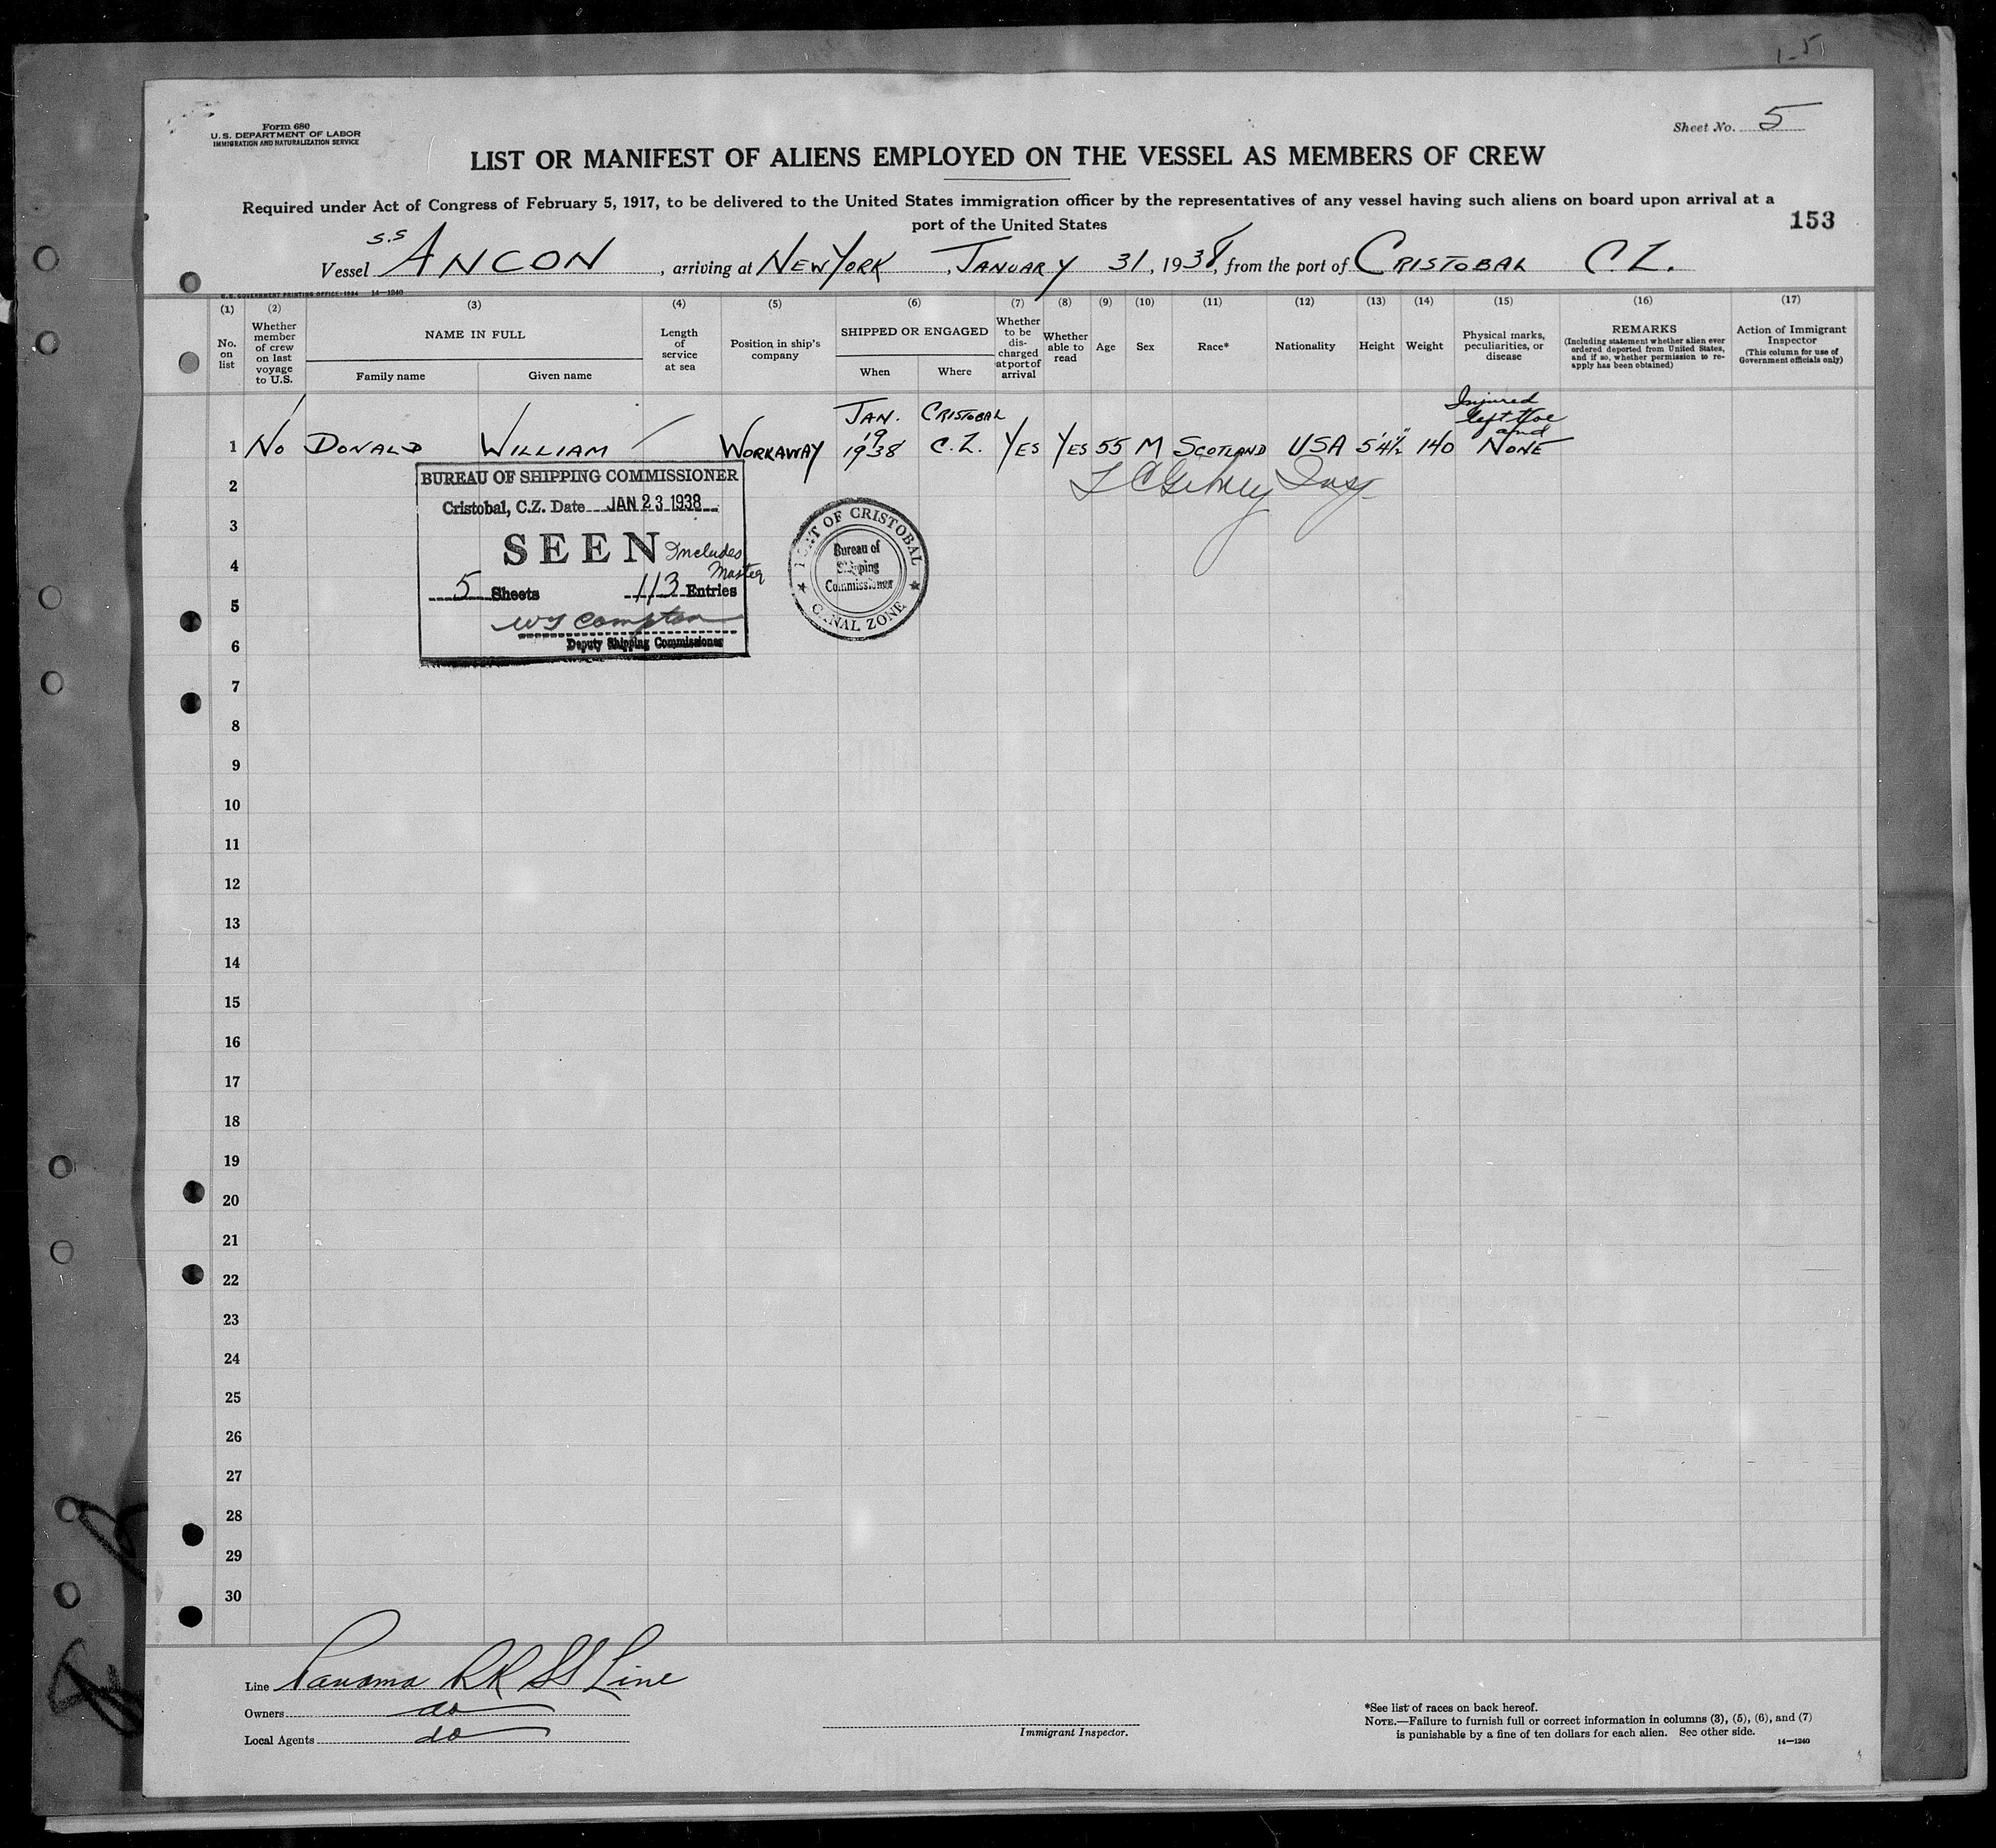 1-5
Form 680
U. S. DEPARTMENT OF LABOR
IMMIGRATION AND NATURALIZATION SERVICE
Sheet No. 5
LIST OR MANIFEST OF ALIENS EMPLOYED ON THE VESSEL AS MEMBERS OF CREW
Required under Act of Congress of February 5, 1917, to be delivered to the United States immigration officer by the representatives of any vessel having such aliens on board upon arrival at a
port of the United States
153
Vessel S.S ANCON, arriving at NEW YORK, JANUARY 31, 1938, from the port of CRISTOBAL C.Z.
U. S. GOVERNMENT PRINTING OFFICE: 1934 14—1240
(1) (2) (3) (4) (5) (6) (7) (8) (9) (10) (11) (12) (13) (14) (15) (16) (17)
No. on list
Whether member of crew on last voyage to U.S.
NAME IN FULL
Family name
Given name
Length of service at sea
Position in ship's company
SHIPPED OR ENGAGED
When
Where
Whether to be discharged at port of arrival
Whether able to read
Age
Sex
Race*
Nationality
Height
Weight
Physical marks, peculiarities, or disease
REMARKS
(Including statement whether alien ever ordered deported from United States, and if so, whether permission to reapply has been obtained)
Action of Immigrant Inspector
(This column for use of Government officials only)
1 No DONALD WILLIAM WORKAWAY JAN. 19 1938 CRISTOBAL C.Z. YES YES 55 M SCOTLAND USA 5'4½" 140 Injured left toe and NONE
2
3
4
5
6
7
8
9
10
11
12
13
14
15
16
17
18
19
20
21
22
23
24
25
26
27
28
29
30
BUREAU OF SHIPPING COMMISSIONER
Cristobal, C.Z. Date JAN 23 1938
SEEN Includes Master
5 Sheets 113 Entries
W Compton
Deputy Shipping Commissioner
PORT OF CRISTOBAL
Bureau of
Shipping
Commissioner
CANAL ZONE
Line Panama RR SS Line
Owners do
Local Agents do
Immigrant Inspector.
*See list of races on back hereof.
NOTE.—Failure to furnish full or correct information in columns (3), (5), (6), and (7)
is punishable by a fine of ten dollars for each alien. See other side.
14—1240